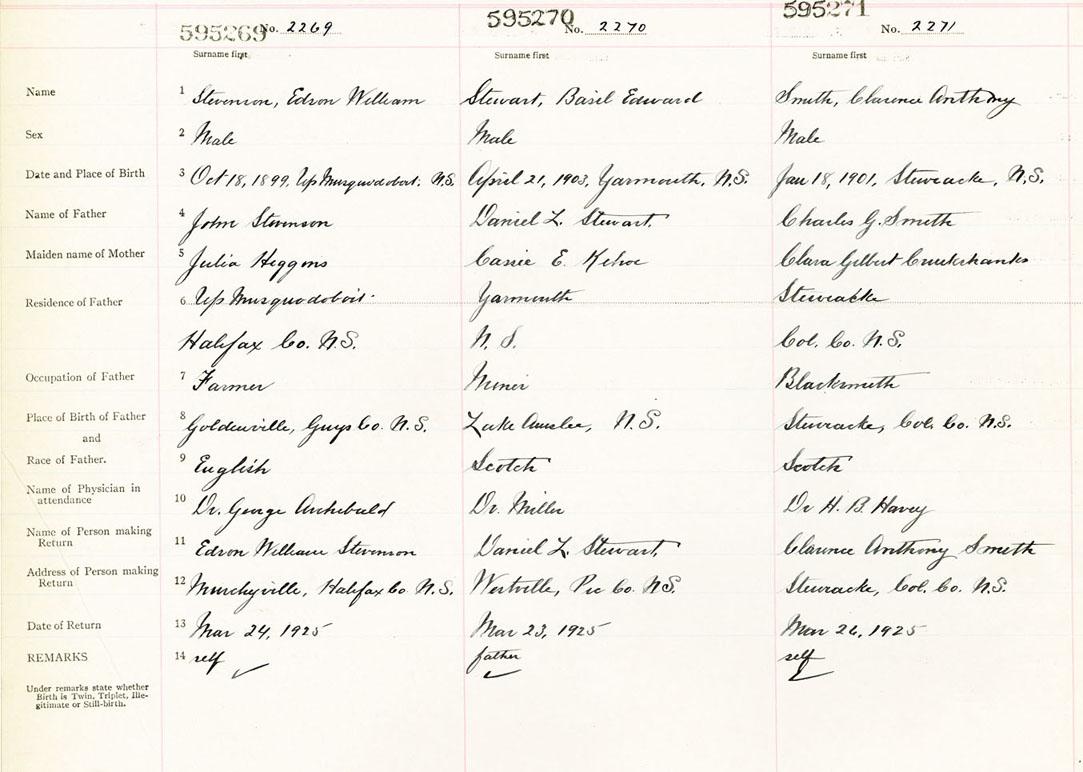 595269 No. 2269 595270 No. 2270 595271 No. 2271
Surname first Surname first Surname first
Name 1 Stevenson, Edson William Stewart, Basil Edward Smith, Clarence Anthony
Sex 2 Male Male Male
Date and Place of Birth 3 Oct 18, 1899, Up Musquodoboit. N.S. April 21, 1903, Yarmouth, N.S. Jan 18, 1901, Stewiacke, N.S.
Name of Father 4 John Stevenson Daniel L. Stewart. Charles G. Smith
Maiden name of Mother 5 Julia Higgons Cassie E. Kehoe Clara Gilbert Cruickshanks
Residence of Father 6 Up Musquodoboit. Yarmouth Stewiacke
Halifax Co. N.S. N.S. Col. Co. N.S.
Occupation of Father 7 Farmer Miner Blacksmith
Place of Birth of Father 8 Goldenville, Guys Co. N.S. Lake Ainslee, N.S. Stewiacke, Col. Co. N.S.
and
Race of Father. 9 English Scotch Scotch
Name of Physician in
attendance 10 Dr. George Archibald Dr. Miller Dr H. B. Havey
Name of Person making
Return 11 Edson William Stevenson Daniel L. Stewart, Clarence Anthony Smith
Address of Person making
Return 12 Murchyville, Halifax Co. N.S. Westville, Pic Co. NS. Stewiacke, Col. Co. N.S.
Date of Return 13 Mar 24, 1925 Mar 23, 1925 Mar 26, 1925
REMARKS 14 self father self
Under remarks state whether
Birth is Twin, Triplet, Ille-
gitimate or Still-birth.